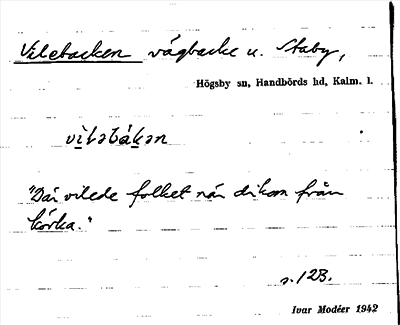 Vilebacken vägbacke u. Staby,
Högsby sn, Handbörds hd, Kalm. l.
vìləbákən
"Där vilede folket när di kom från
körka."
s. 123.
Ivar Modéer 1942